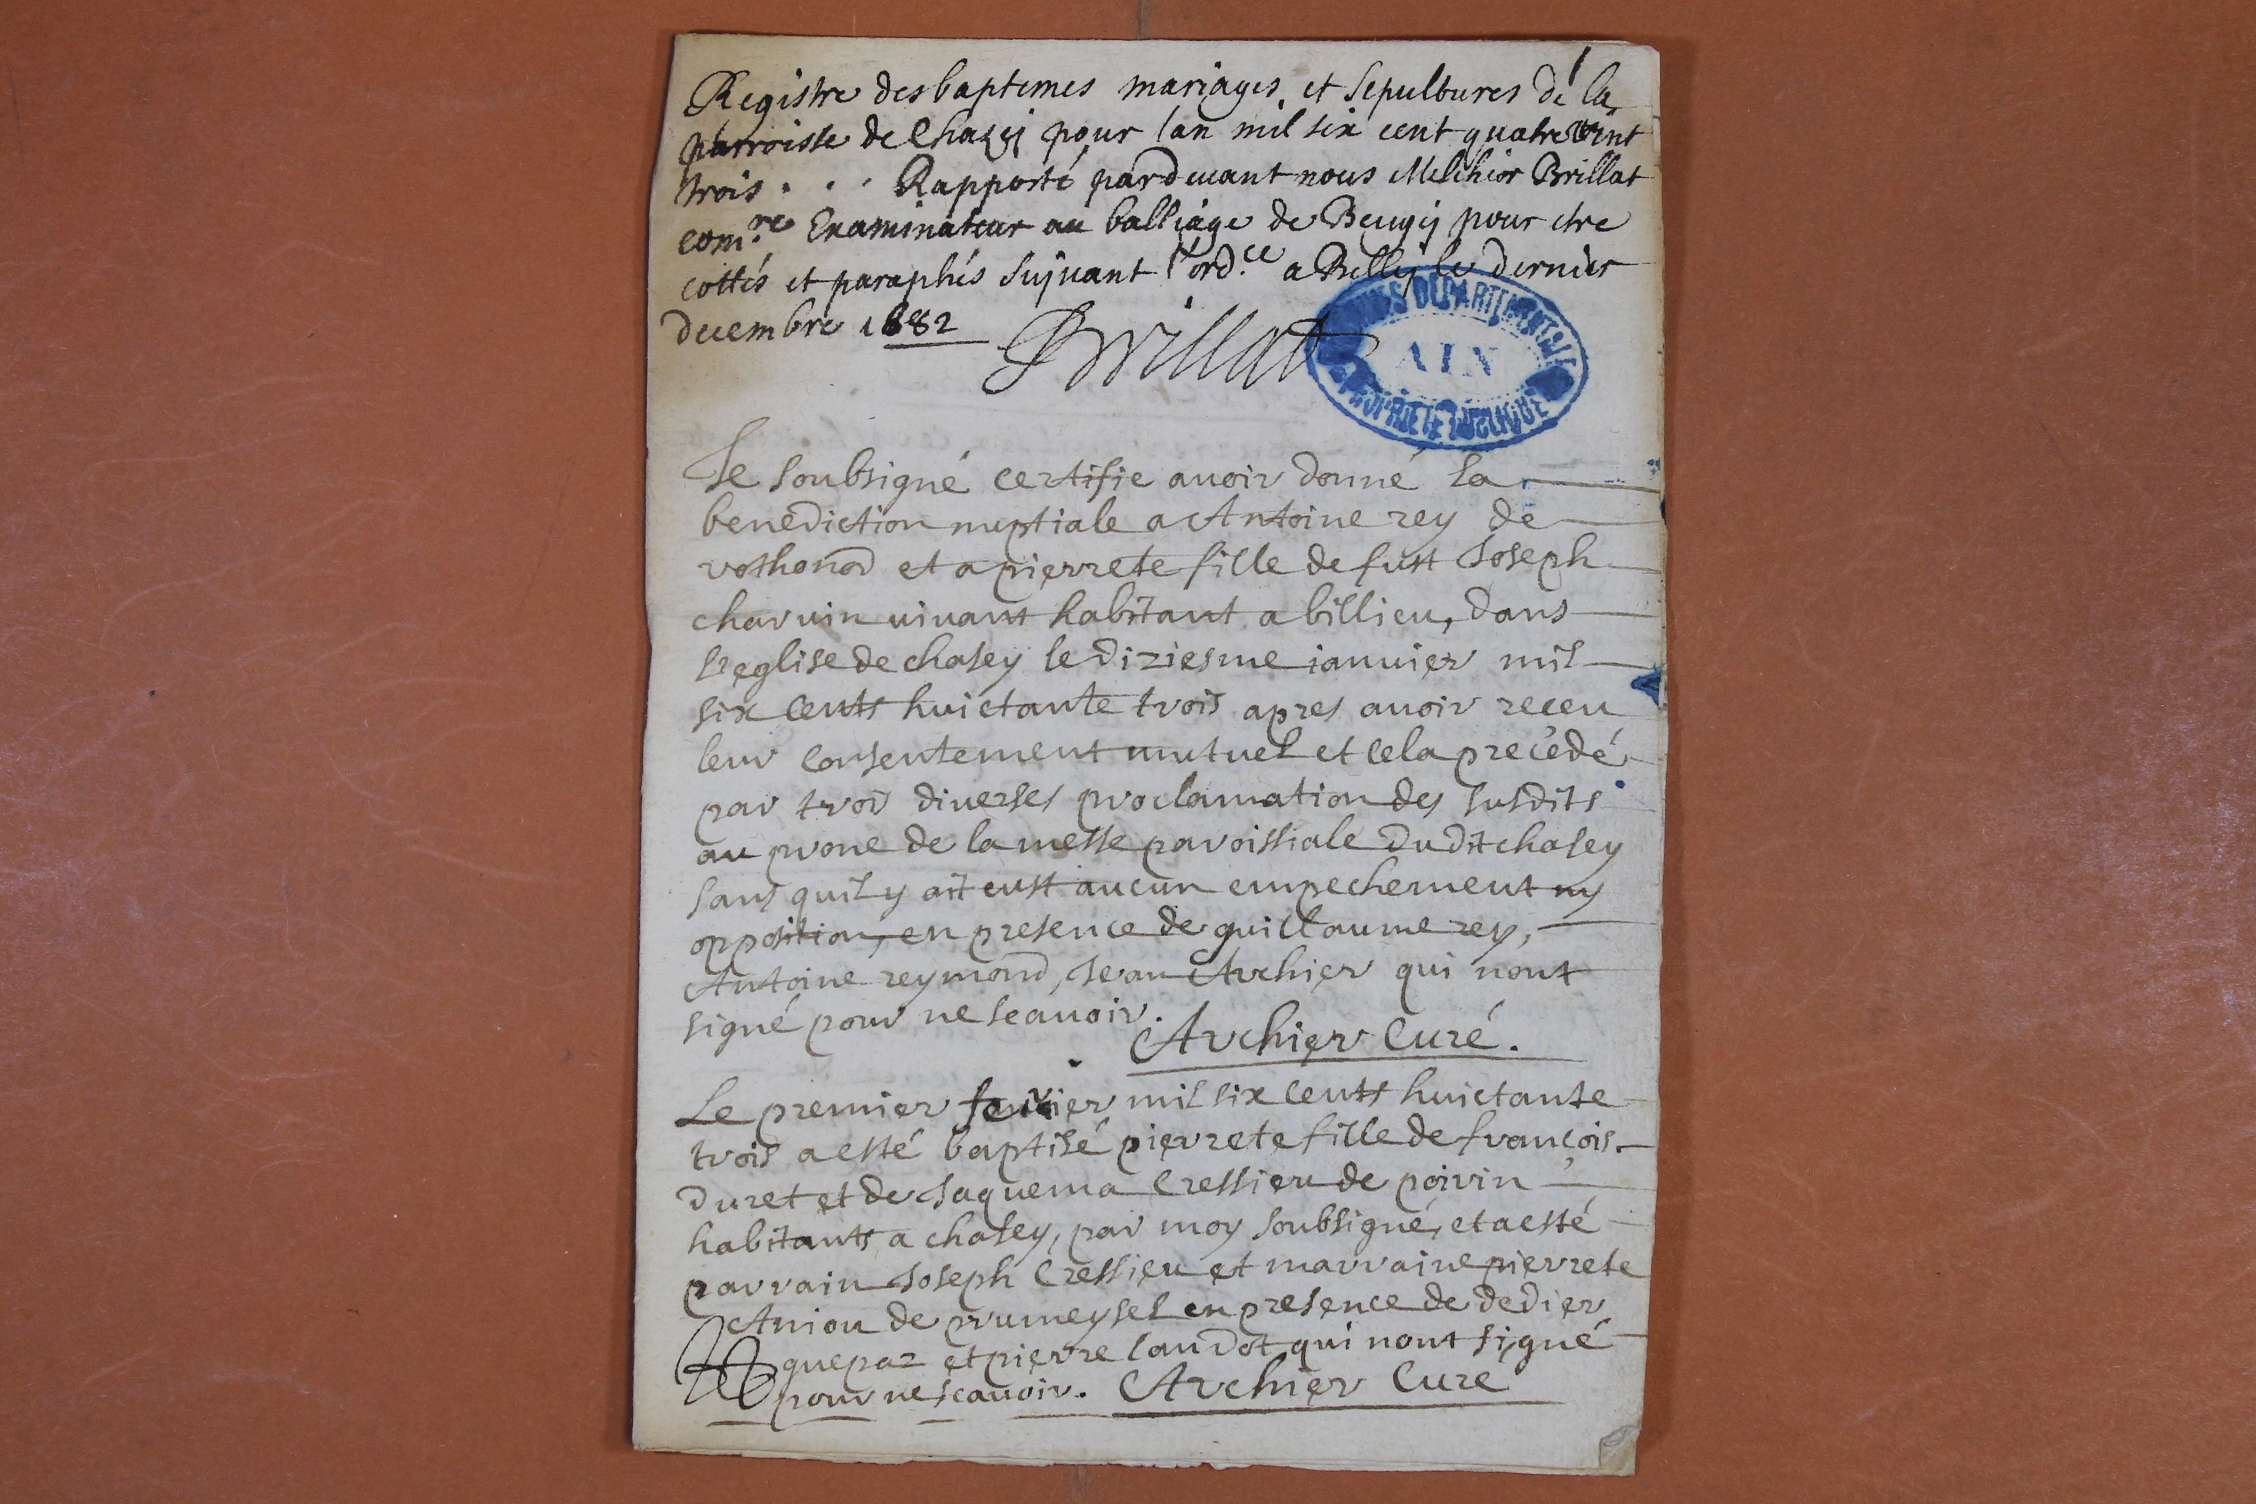 1
Registre des baptemes mariages et sepultures de la
parroisse de Chazej pour lan mil six cent quatre vint
trois . . . Rapporté pardeuant nous Melchior Brillat
com.re Examinateur au balliage de Beugej pour etre
cottés et paraphés sujuant l'ord.ce a Belley le dernier
decembre 1682 Brillat
ARCHIVES DEPARTEMENTALES
AIN
PROPRIETE PUBLIQUE
Je soubsigné certifie auoir donné la
benediction nuptiale a Antoine rey de
vothonod et a pierrete fille de fust Joseph
charuin viuant habitant a billieu, dans
l'eglise de chasey le diziesme ianuier mil
six cents huictante trois apres auoir receu
leur consentement mutuel et cela precédé
par trois diuerses proclamation des susdits
au prone de la messe paroissiale dudit chasey
sans quil y ait eust aucun empechement ny
opposition, en presence de guillaume rey,
Antoine reymond, Jean Archier qui nont
signé pour ne scauoir.
Archier Curé.
Le premier feurier mil six cents huictante
trois a esté baptisé pierrete fille de françois
duret et de Jaquema Cressieu de poirin
habitants a chasey, par moy soubsigné, et a esté
parrain Joseph Cressieu et marraine pierrete
Aniou de prumeysel en presence de dedier
quepaz et pierre landot qui nont signé
pour ne scauoir. Archier Curé